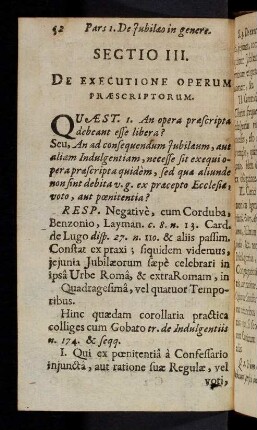 52 Pars 1. De Jubilæo in genere.
SECTIO III.
DE EXECUTIONE OPERUM
PRÆSCRIPTORUM.
QUÆST. 1. An opera præscripta
debeant esse libera?
Seu, An ad consequendum Jubilæum, aut
aliam Indulgentiam, necesse sit exequi o-
pera præscripta quidem, sed quæ aliunde
non sint debita v. g. ex præcepto Ecclesiæ,
voto, aut pœnitentia?
RESP. Negativè, cum Corduba,
Benzonio, Layman. c. 8. n. 13. Card.
de Lugo disp. 27. n. 110. & aliis passim.
Constat ex praxi; siquidem videmus,
jejunia Jubilæorum sæpè celebrari in
ipsâ Urbe Româ, & extra Romam, in
Quadragesimâ, vel quatuor Tempo-
ribus.
Hinc quædam corollaria practica
colliges cum Gobato tr. de Indulgentiis
n. 174. & seqq.
I. Qui ex pœnitentiâ à Confessario
injunctâ, aut ratione suæ Regulæ, vel
voti,